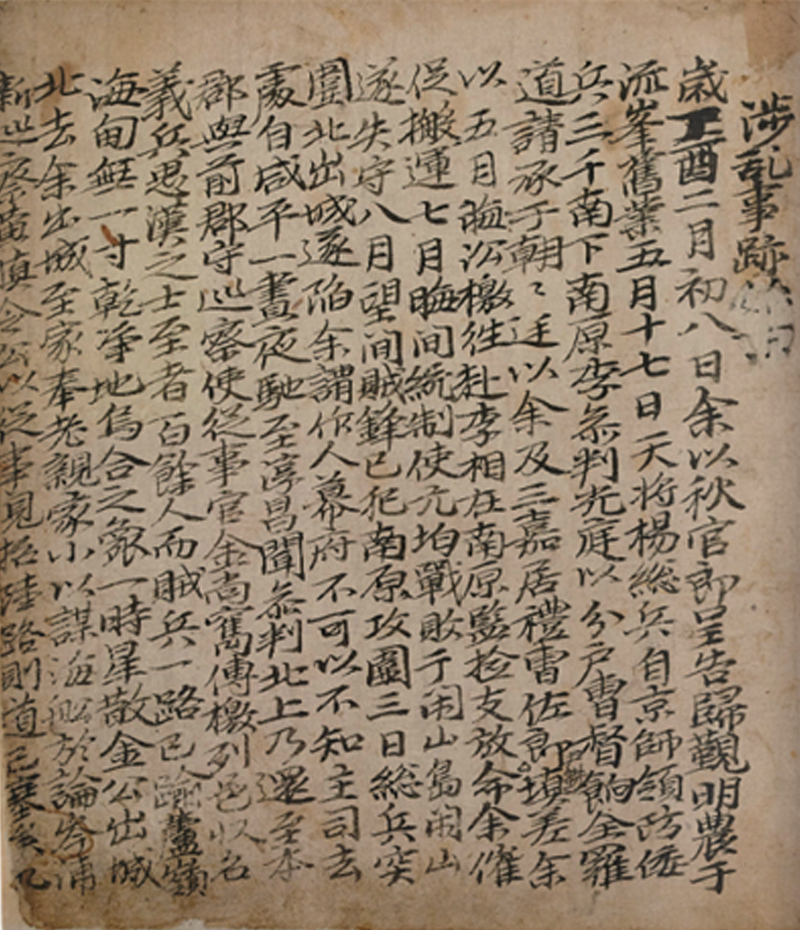 涉乱事跡
歲丁酉二月初八日余以秋官郎呈告歸覲明農于
流峯舊業五月十七日天將楊総兵自京師領防倭
兵三千南下南原李叅判光庭以分戶曺督餉全羅
道請承于朝〻廷以余及三嘉居禮曺佐郎塡差余
以五月晦沿檄徃赴李相在南原監捡支放命余催
促搬運七月晦間統制使元均戰敗于闲山島闲山
遂失守八月望間賊鋒已犯南原攻圍三日総兵突
圍北出城遂陷余謂作人幕府不可以不知主司去
處自咸平一晝夜馳至淳昌聞叅判北上乃還至本
郡與前郡守巡察使從事官金尙寯傳檄列邑收名
義兵思漢之士至者百餘人而賊兵一路已踰蘆嶺
海甸無一寸乾淨地烏合之衆一時星散金公出城
北去余出城至家奉老親家小以謀海船於論岑浦
新巡察黃愼令公以從事見招陸路則道已塞矣